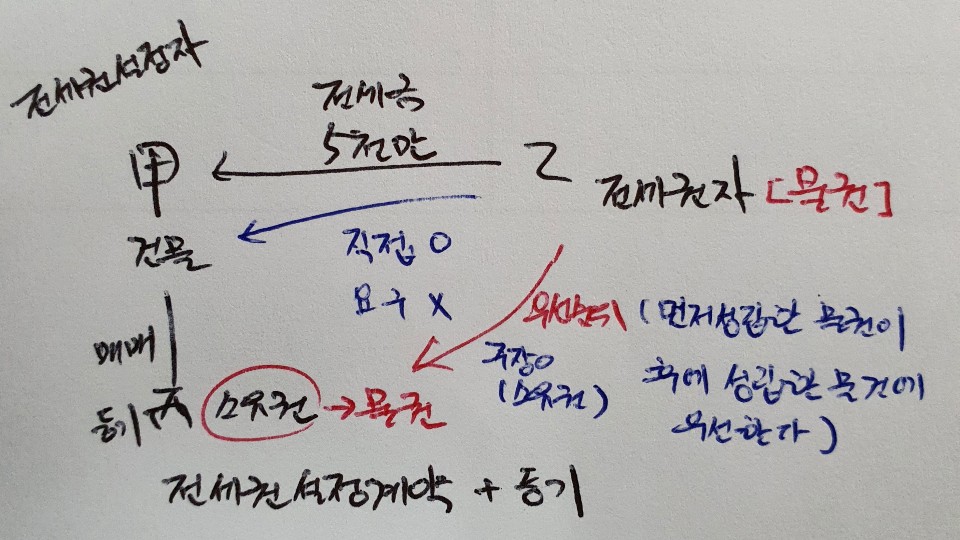 전세권설정자
전세금
5천만
甲
乙
전세권자 [물권]
건물
직접 O
요구 X
매매
등기 丙
소유권 → 물권
우선순위 (먼저성립한 물권이
주장O
(소유권)
후에 성립한 물건에
우선한다)
전세권설정계약 + 등기